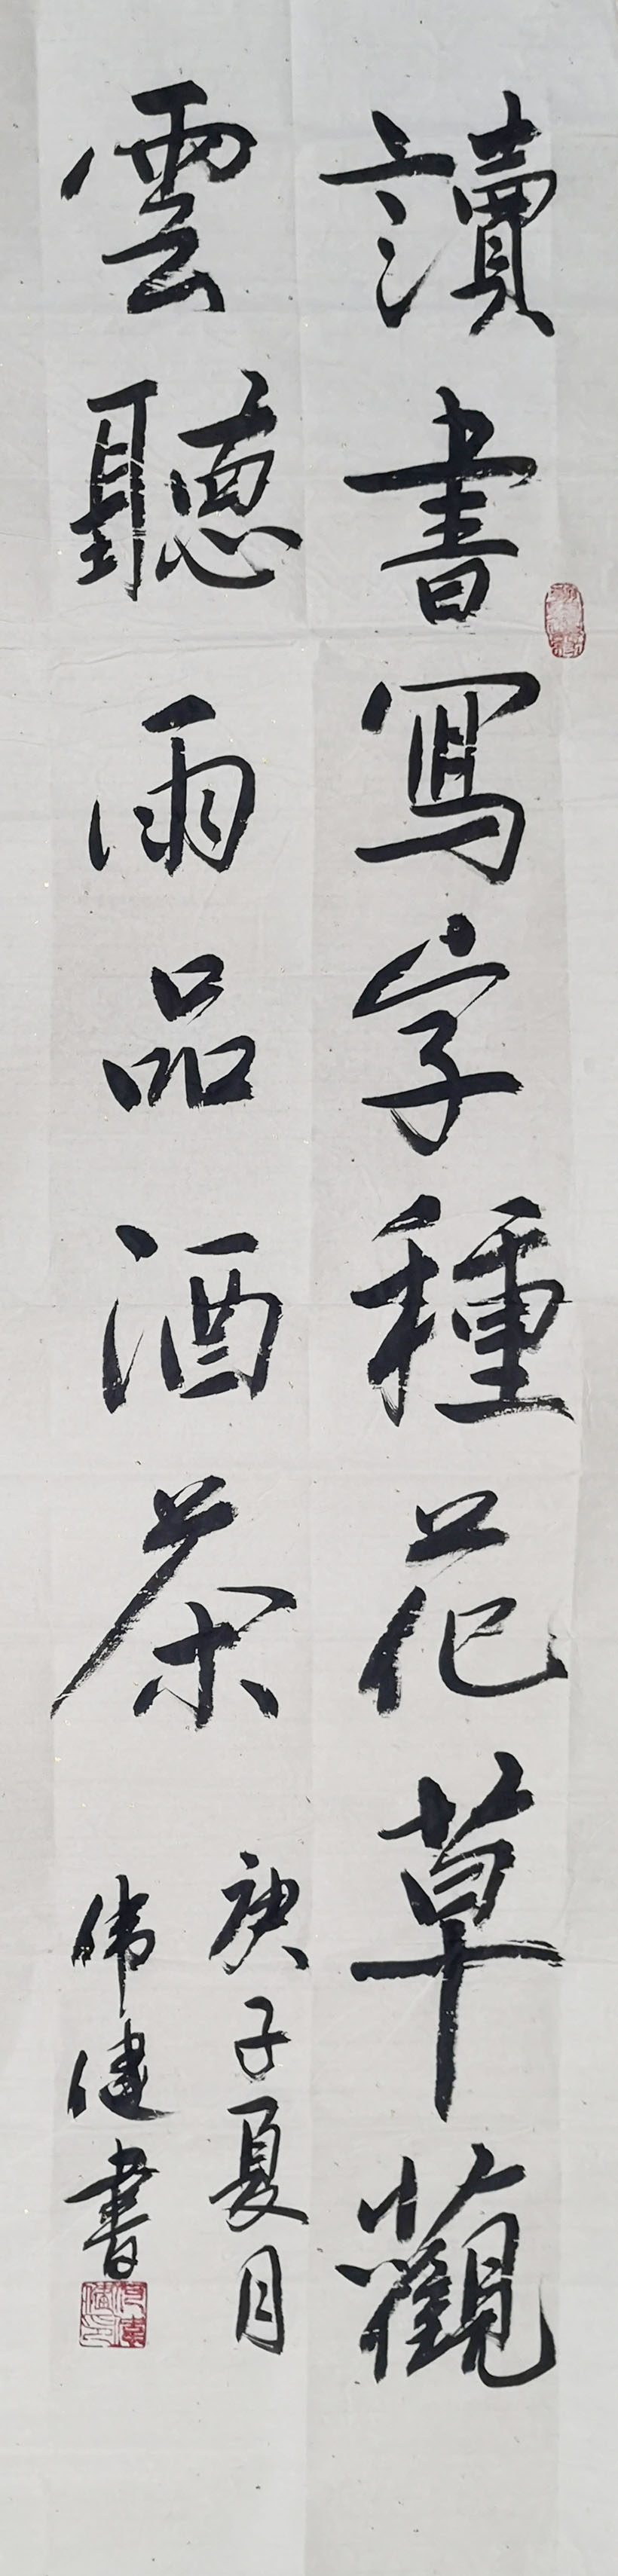 讀書寫字種花草觀
雲聽雨品酒茶
庚子夏月
偉健書